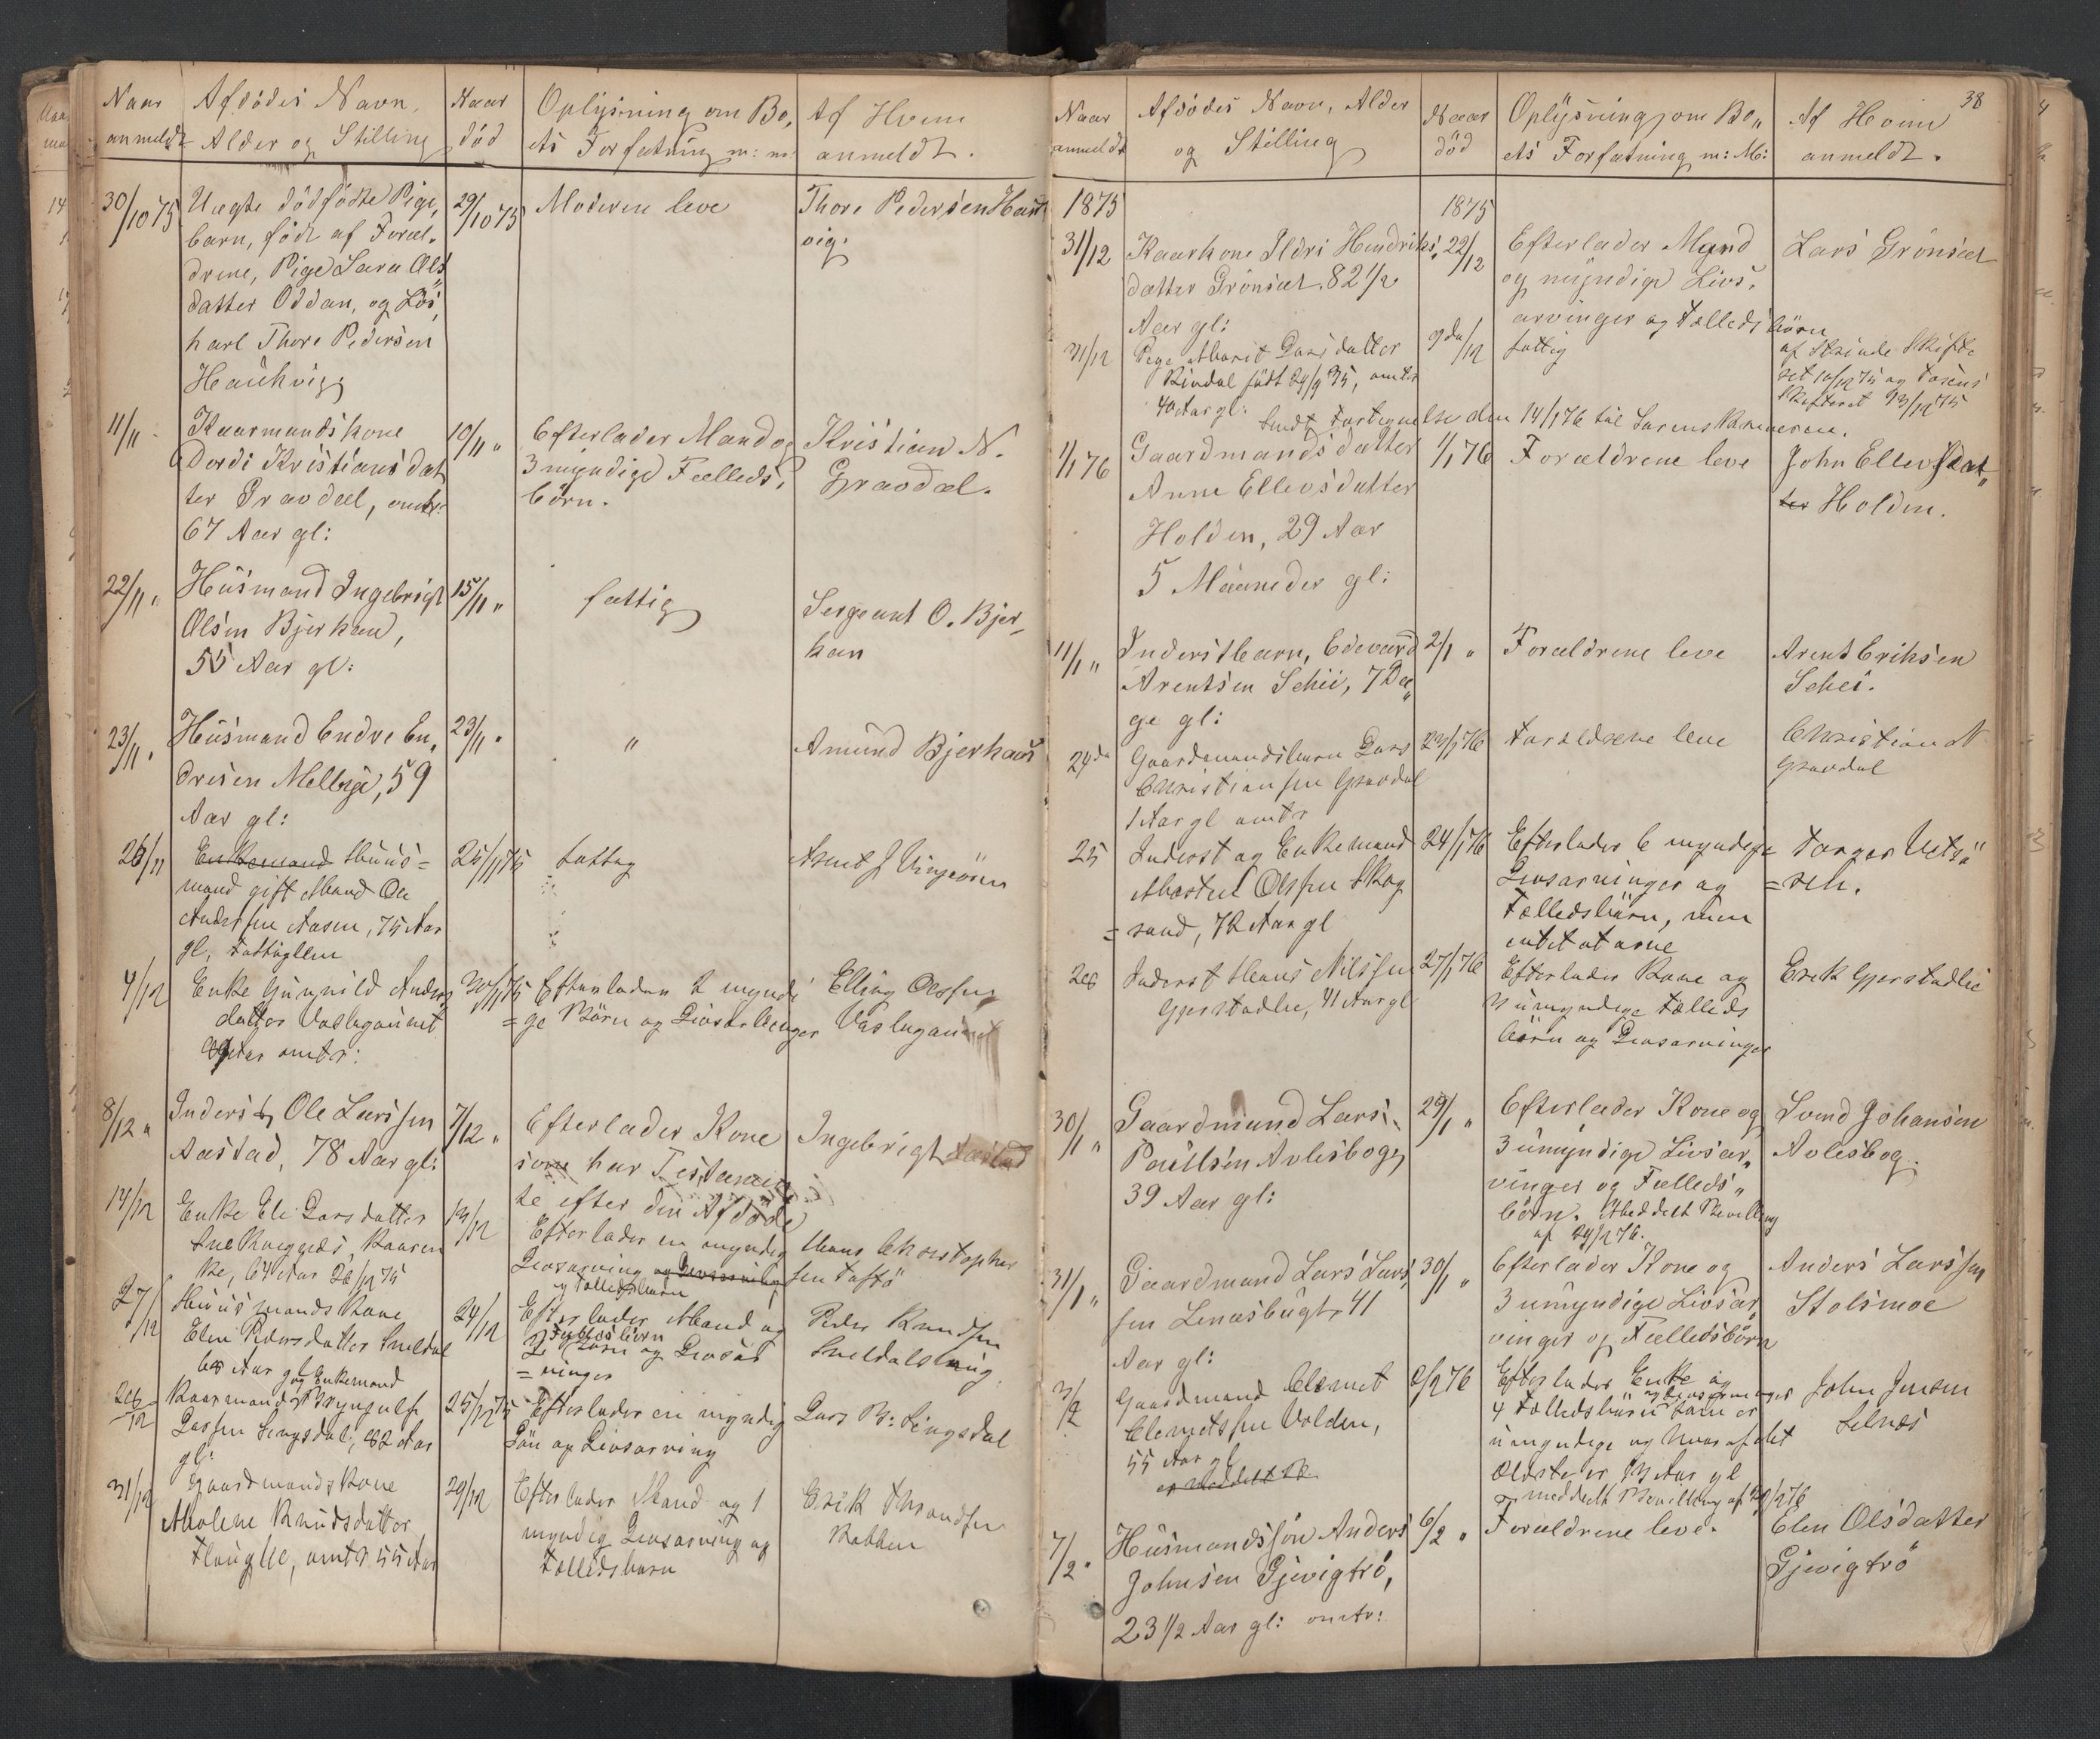 Naar
anmeldt
Afdødes Navn,
Alder og Stilling
Naar
død
Oplysning om Bo,
ets Forfatning m: m:
Af Hvem
anmeldt.
30/10 75
Uægte dødfødte Pige,
barn, født af Foræl,
drene, Pige Sara Ols
datter Oddan, og Løs,
karl Thore Pedersen
Haukvig
29/10 75
Moderen leve
Thore Pedersen Hauk
vig.
11/11
Kaarmandskone
Dordi Kristiansdat
ter Gravdal, omtr:
67 Aar gl:
10/11 "
Efterlader Mand og
3 myndige Fælleds,
børn.
Kristian N.
Gravdal.
22/11 "
Husmand Ingebrigt
Olsen Bjerkan,
55 Aar gl:
15/11 "
fattig
Sergeant O. Bjer,
kan
23/11 "
Husmand Endre En,
dresen Melbye, 59
Aar gl:
23/11 "
"
Amund Bjerkaas
26/11
Enkemand Huus=
mand gift Mand Ole
Andersen Aasen, 75 Aar
gl, Fattiglem
25/11 75
fattig
Arnt J Vingeøren
4/12
Enke Gunnild Anders
datter Vaslugaunet
Aar omtr:
30/11 75
Efterlader 2 myndi
=ge Børn og Livsarvinger
Elling Olssen
Vaslugaunet
8/12 "
Inderst Ole Larssen
Aastad, 78 Aar gl:
7/12 "
Efterlader Kone
som har Testamen
te efter den Afdøde
Ingebrigt Aastad
14/12
Enke Eli Larsdatter
Kaaren
ke, 67 Aar 26/12 75
13/12
Efterlader en myndig
Livsarving og Livsarving
og Fælledsbarn
Hans Christopher
sen Toftø
27/12
Huusmands Kone
Elen Pedersdatter Sneldal
68 Aar gl
24/12
Efterlader Mand og
Fælledsbørn
2 Børn og Livsar
=vinger
Peder Knudsen
Sneldalseng
28/12
og Enkemand
Kaarmand Brynjulf
Larsen Singsdal, 82 Aar
gl:
25/12 75
Efterlader en myndig
Søn og Livsarving
Lars B: Singsdal
31/12
Gaardmandskone
Malene Knudsdatter
omtr 55 Aar
29/12
Efterlader Mand og 1
myndig Livsarving og
Fælledsbarn
Erik Throndsen
Rabben
38
Naar
anmeldt
Afdødes Navn, Alder
og Stilling
Naar
død
Oplysning om Bo,,
ets Forfatning m: M:
Af Hvem
anmeldt.
1875
1875
31/12
Kaarkone Ildri Hendriks,
datter Grønset. 82 1/2
Aar gl:
22/12
Efterlader Mand
og myndige Livs,
arvinger og Fælledsbørn
Lars Grønset
31/12
Pige Marit Larsdatter
Rindal født 29/9 35, omtr
40 Aar gl:
9de/12
fattig
af Strinde Skifte
ret 10/12 75 og Fosens
Skifteret 23/12 75
Sendt Fortegnelse den 14/1 76 til Sorenskriveren.
1/1 76
Gaardmandsdatter
Anne Ellevsdatter
Holden, 29 Aar
5 Maaneder gl:
1/1 76
Forældrene leve
John Ellevsdat,,
ter Holden.
11/1 "
Inderstbarn, Edevard
Arentsen Schei, 7 Da,,
ge gl:
2/1 "
Forældrene leve
Arent Eriksen
Schei.
24de
Gaardmandsbarn Lars
Christiansen Gravdal
1 Aar gl omtr
23/1 76
Forældrene leve
Christian N
Gravdal
25
Inderst og Enkemand
Olssen Skog
=rand, 72 Aar gl
24/1 76
Efterlader 6 myndige
Livsarvinger og
Fælledsbørn, men
intet at arve
Torger Vets
=seth.
28
Inderst Hans Nilssen
Gjerstadlie, 41 Aar gl
27/1 76
Efterlader Kone og
3 umyndige Fælleds
børn og Livsarvinger
Erik Gjerstadlie
30/1 "
Gaardmand Lars
Paulsen Avlesbog,
39 Aar gl:
29/1 "
Efterlader Kone og
3 umyndige Livsar,,
vinger og Fælleds,,
børn. Meddelt Bevilling
af 29/2 76.
Svend Johansen
Avlesbog.
31/1 "
Gaardmand Lars Lars,
sen Lenæsbugt, 41
Aar gl:
30/1 "
Efterlader Kone og
3 umyndige Livsar,
vinger og Fælledsbørn
Anders Larssen
Stolsmoe
3/2
Gaardmand Clemet
Clemetssen Valden,
55 Aar gl
er Meddelt B
2/2 76
Efterlader Enke og
og Livsarvinger
4 Fælledsbørn som er
umyndige og hvoraf det
Ældste er 13 Aar gl
meddelt Bevilling af 29/2 76
John Jensen
Selnes
7/2 "
Husmandssøn Anders
Johnsen Gjevigtrø,
23 1/2 Aar gl: omtr:
6/2 "
Forældrene leve.
Elen Olsdatter
Gjevigtrø